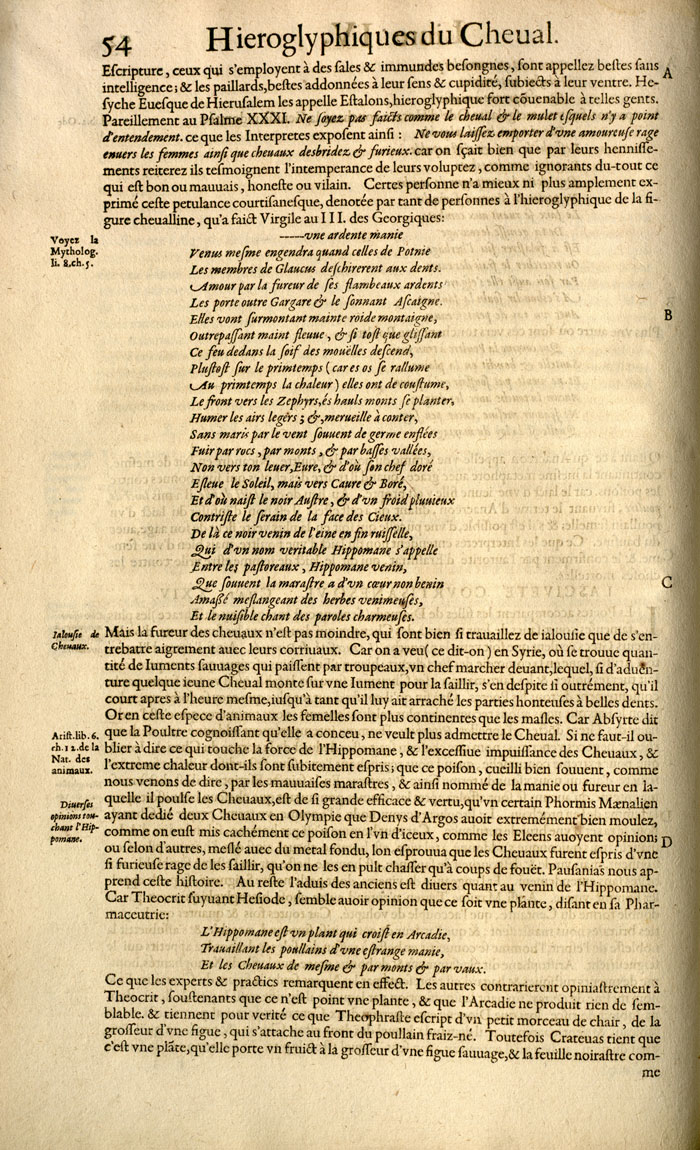 54 Hieroglyphiques du Cheual.
Escripture, ceux qui s'employent à des sales & immundes besongnes, sont appellez bestes sans
A
intelligence; & les paillards, bestes addonnées à leur sens & cupidité, subiects à leur ventre. He-
syche Euesque de Hierusalem les appelle Estalons, hieroglyphique fort cõuenable à telles gents.
Pareillement au Psalme XXXI. Ne soyez pas faicts comme le cheual & le mulet esquels n'y a point
d'entendement. ce que les Interpretes exposent ainsi: Ne vous laissez emporter d'vne amoureuse rage
enuers les femmes ainsi que cheuaux desbridez & furieux. car on sçait bien que par leurs hennisse-
ments reiterez ils tesmoignent l'intemperance de leurs voluptez, comme ignorants du-tout ce
qui est bon ou mauuais, honeste ou vilain. Certes personne n'a mieux ni plus amplement ex-
primé ceste petulance courtisanesque, denotée par tant de personnes à l'hieroglyphique de la fi-
gure cheualline, qu'a faict Virgile au III. des Georgiques:
Voyez la
Mytholog.
li. 8.ch.5.
-----vne ardente manie
Venus mesme engendra quand celles de Potnie
Les membres de Glaucus deschirerent aux dents.
Amour par la fureur de ses flambeaux ardents
Les porte outre Gargare & le sonnant Ascaigne.
B
Elles vont surmontant mainte roide montaigne,
Outrepassant maint fleuue, & si tost que glissant
Ce feu dedans la soif des mouëlles descend,
Plustost sur le primtemps (car es os se rallume
Au primtemps la chaleur) elles ont de coustume,
Le front vers les Zephyrs, és hauls monts se planter,
Humer les airs legérs; &, merueille à conter,
Sans maris par le vent souuent de germe enflées
Fuir par rocs, par monts, & par basses vallées,
Non vers ton leuer, Eure, & d'où son chef doré
Esleue le Soleil, mais vers Caure & Boré,
Et d'où naist le noir Austre, & d'vn froid pluuieux
Contriste le serain de la face des Cieux.
De là ce noir venin de l'eine en fin ruisselle,
Qui d'vn nom veritable Hippomane s'appelle
Entre les pastoreaux, Hippomane venin,
C
Que souuent la marastre a d'vn cœur non benin
Amassé meslangeant des herbes venimeuses,
Et le nuisible chant des paroles charmeuses.
Ialousie de
Cheuaux.
Mais la fureur des cheuaux n'est pas moindre, qui sont bien si trauaillez de ialousie que de s'en-
trebatre aigrement auec leurs corriuaux. Car on a veu (ce dit-on) en Syrie, où se trouue quan-
tité de Iuments sauuages qui paissent par troupeaux, vn chef marcher deuant, lequel, si d'aduen-
ture quelque ieune Cheual monte sur vne Iument pour la saillir, s'en despite si outrément, qu'il
court apres à l'heure mesme, iusqu'à tant qu'il luy ait arraché les parties honteuses à belles dents.
Or en ceste espece d'animaux les femelles sont plus continentes que les masles. Car Absyrte dit
Arist.lib.6.
ch.12.de la
Nat. des
animaux.
que la Poultre cognoissant qu'elle a conceu, ne veult plus admettre le Cheual. Si ne faut-il ou-
blier à dire ce qui touche la force de l'Hippomane, & l'excessiue impuissance des Cheuaux, &
l'extreme chaleur dont-ils sont subitement espris; que ce poison, cueilli bien souuent, comme
nous venons de dire, par les mauuaises marastres, & ainsi nommé de la manie ou fureur en la-
Diuerses
opinions tou-
chant l'Hip-
pomane.
quelle il poulse les Cheuaux, est de si grande efficace & vertu, qu'vn certain Phormis Mænalien
ayant dedié deux Cheuaux en Olympie que Denys d'Argos auoit extremément bien moulez,
comme on eust mis cachément ce poison en l'vn d'iceux, comme les Eleens auoyent opinion;
D
ou selon d'autres, meslé auec du metal fondu, lon esprouua que les Cheuaux furent espris d'vne
si furieuse rage de les saillir, qu'on ne les en pult chasser qu'à coups de fouët. Pausanias nous ap-
prend ceste histoire. Au reste l'aduis des anciens est diuers quant au venin de l'Hippomane.
Car Theocrit suyuant Hesiode, semble auoir opinion que ce soit vne plante, disant en sa Phar-
maceutrie:
L'Hippomane est vn plant qui croist en Arcadie,
Trauaillant les poullains d'vne estrange manie,
Et les Cheuaux de mesme & par monts & par vaux.
Ce que les experts & practics remarquent en effect. Les autres contrarierent opiniastrement à
Theocrit, soustenants que ce n'est point vne plante, & que l'Arcadie ne produit rien de sem-
blable. & tiennent pour verité ce que Theophraste escript d'vn petit morceau de chair, de la
grosseur d'vne figue, qui s'attache au front du poullain fraiz-né. Toutefois Crateuas tient que
c'est vne plãte, qu'elle porte vn fruict à la grosseur d'vne figue sauuage, & la feuille noirastre com-
me